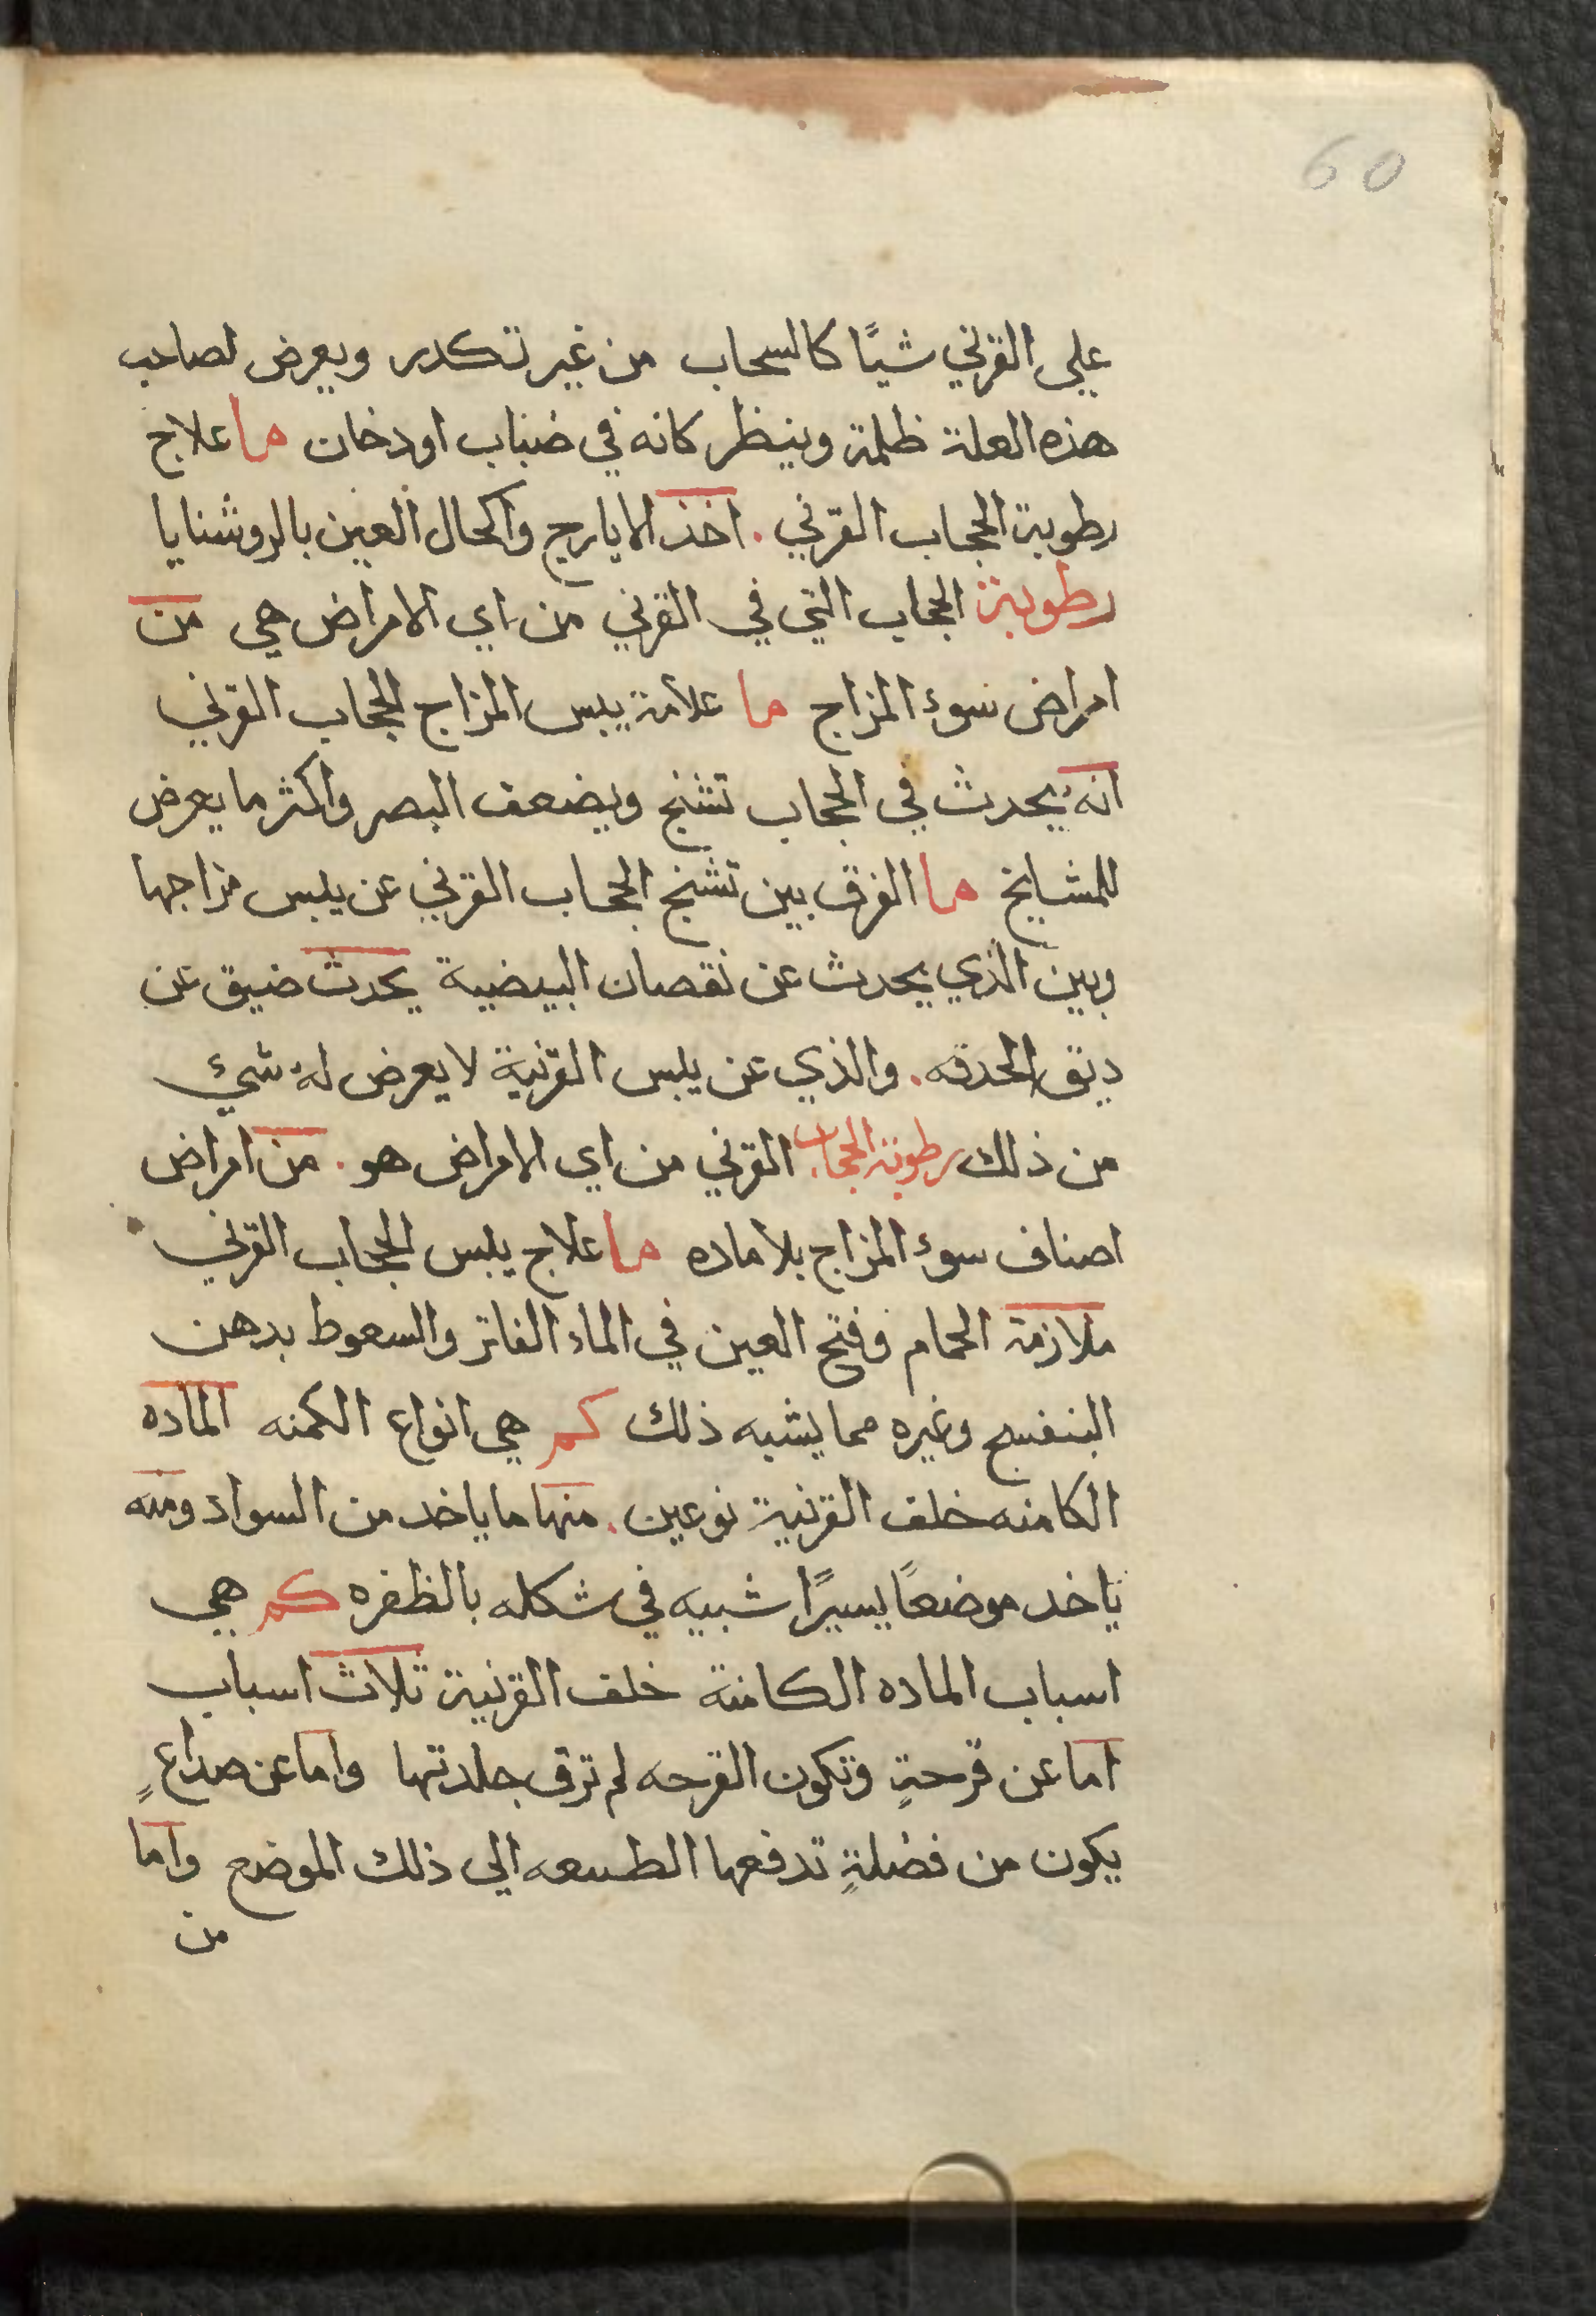 60
علي القرني شيًا كالسحاب من غير تكدر ويعرض لصاحب
هذه العلة ظلمة وينظر كانه في ضباب او دخان ما علاج
رطوبة الحجاب القرني . اخذ الايارج واكحال العين بالروشنايا
رطوبة الحجاب التي في القرني من اي الامراض هي من
امراض سوء المزاج ما علامة يبس المزاج الحجاب القرني
انه يحدث في الحجاب تشنج ويضعف البصر واكثر ما يعرض
للمشايخ ما الفرق بين تشنج الحجاب القرني عن يبس مزاجها
وبين الذي يحدث عن نقصان البيضية يحدث ضيق عن
ديق الحدقه . والذي عن يبس القرنية لا يعرض له شيء
من ذلك رطوبة الحجاب القرني من اي الامراض هو . من امراض
اصناف سوء المزاج بلا ماده ما علاج يبس الحجاب القرني
ملازمة الحمام وفتح العين في الماء الفاتر والسعوط بدهن
البنفسج وغيره مما يشبه ذلك كم هي انواع الكمنه الماده
الكامنه خلف القرنية نوعين . منها ما ياخد من السواد ومنه
ياخد موضعًا يسيرًا شبيه في شكله بالظفره كم هي
اسباب الماده الكامنة خلف القرنية تلاث اسباب
اما عن قرحةٍ وتكون القرحه لم ترق جلدتها واما عن صداعٍ
يكون من فضلةٍ تدفعها الطبيعه الي ذلك الموضع واما
من